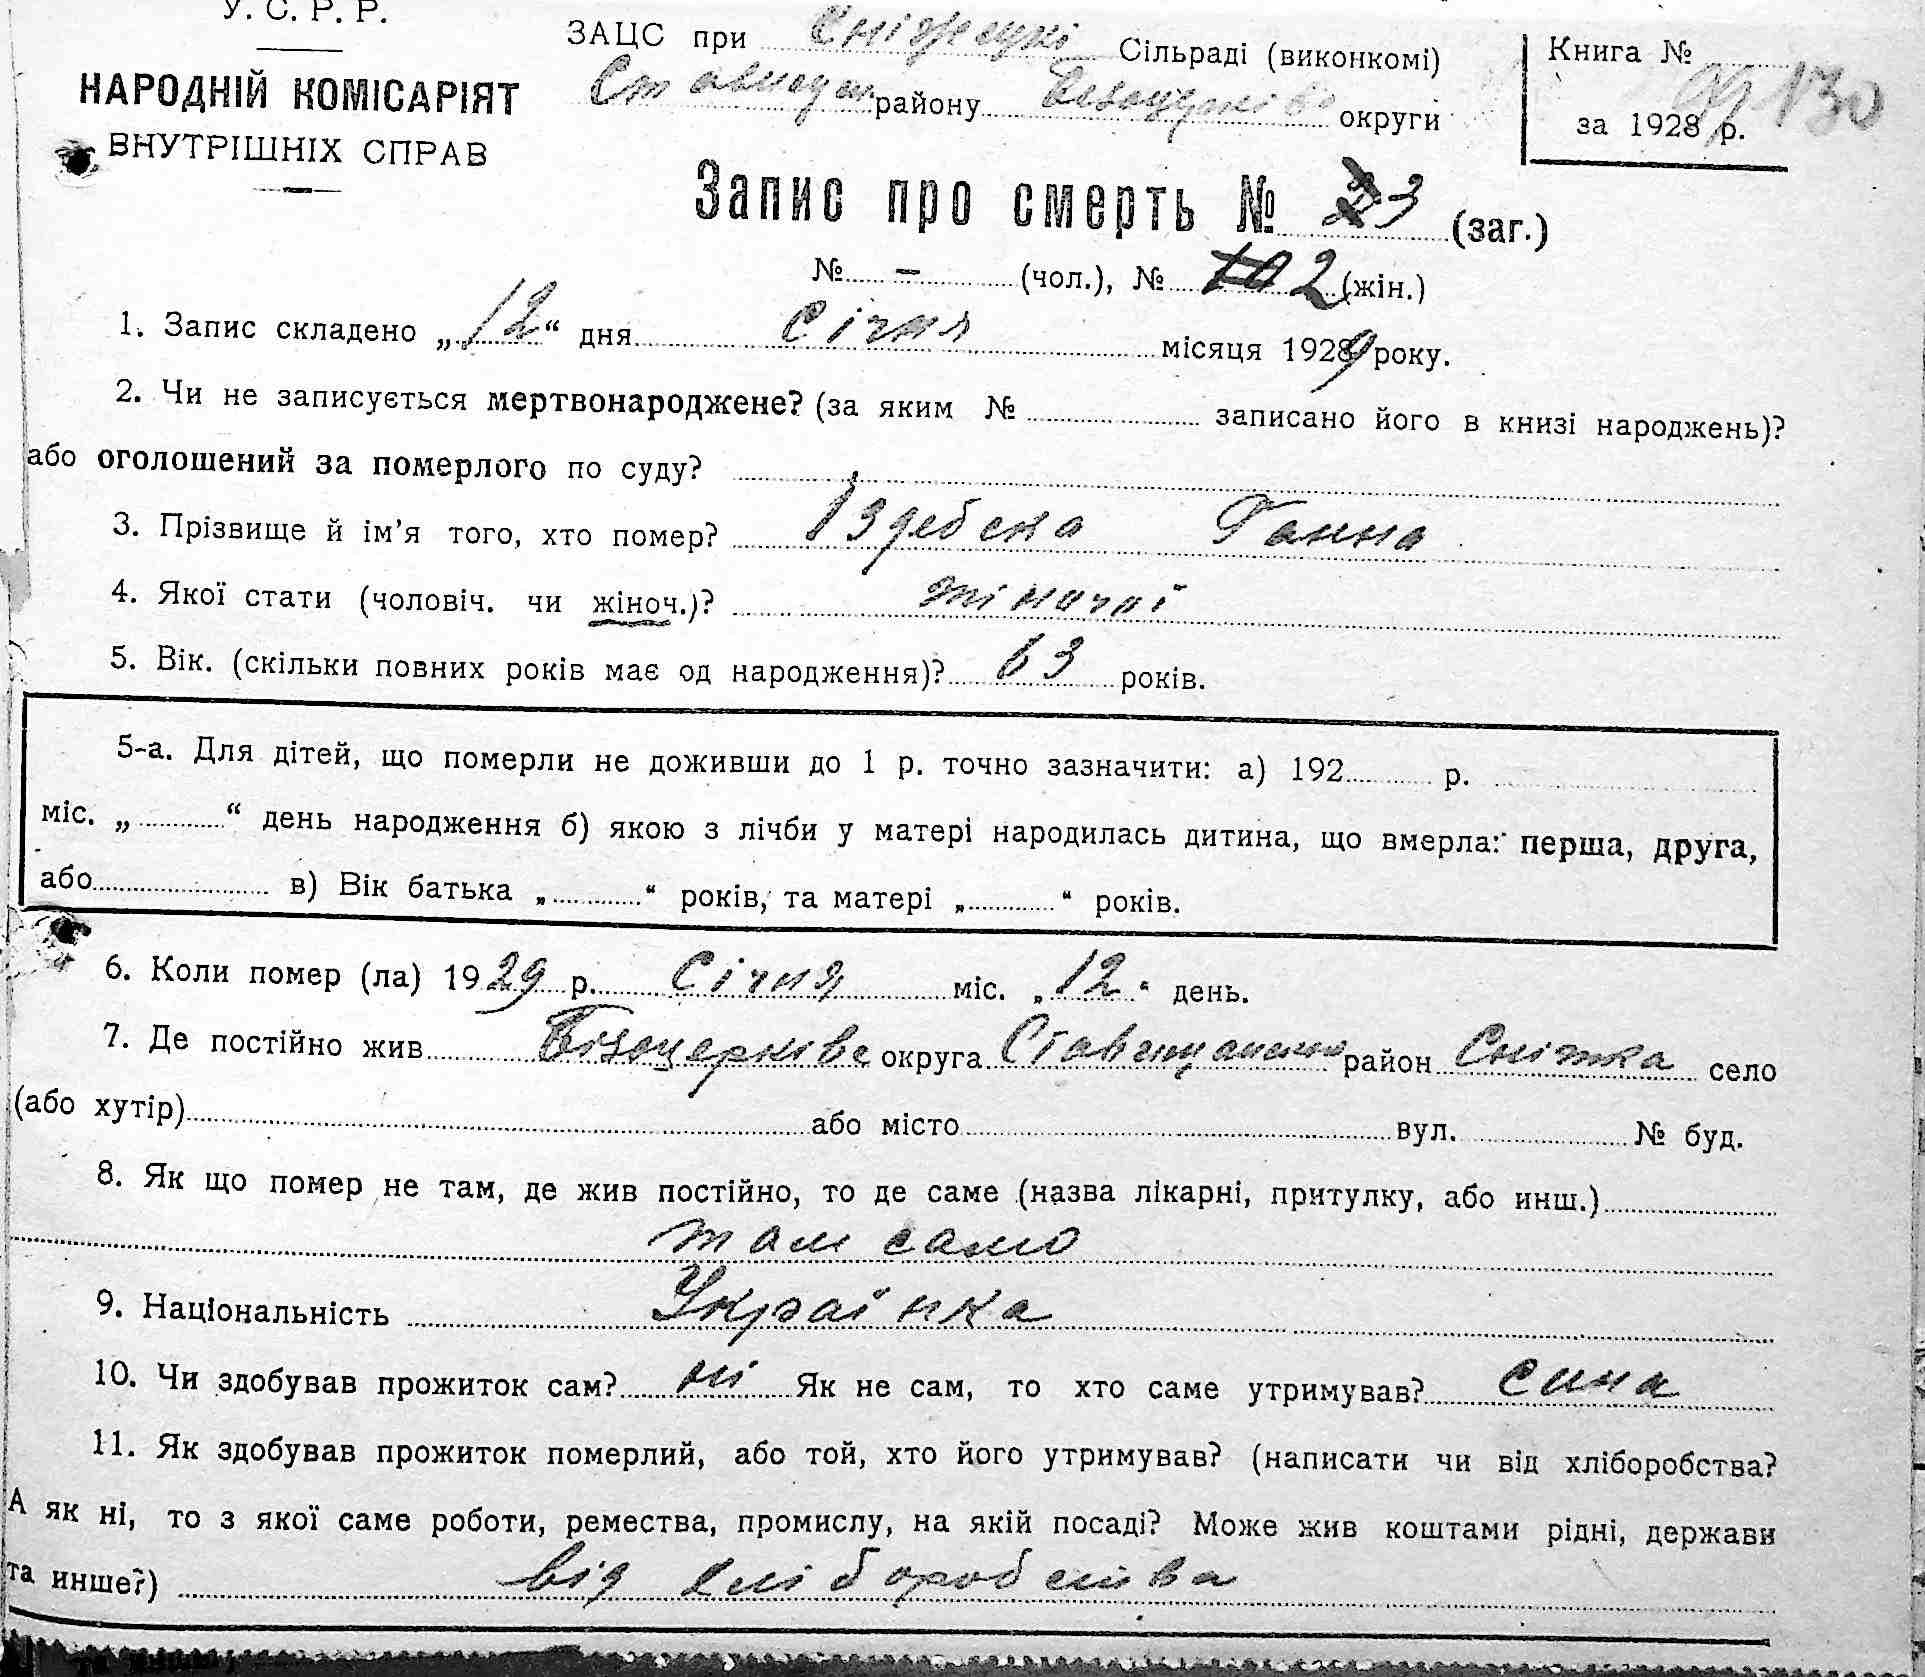 У. С. Р. Р.
НАРОДНІЙ КОМІСАРІЯТ
ВНУТРІШНІХ СПРАВ
ЗАЦС при Сніжецкі Сільраді (виконкомі)
району округи
Книга №
за 1928 р.
130
Запис про смерть № 3 (заг.)
№ — (чол.), № 2 (жін.)
1. Запис складено „12“ дня Січня місяця 1929 року.
2. Чи не записується мертвонароджене? (за яким № записано його в книзі народжень)?
або оголошений за померлого по суду?
3. Прізвище й ім’я того, хто помер? Іздебска Ганна
4. Якої стати (чоловіч. чи жіноч.)? жіночої
5. Вік. (скільки повних років має од народження)? 63 років.
5-а. Для дітей, що померли не доживши до 1 р. точно зазначити: а) 192 р.
міс. „ “ день народження б) якою з лічби у матері народилась дитина, що вмерла: перша, друга,
або в) Вік батька „ “ років, та матері „ “ років.
6. Коли помер (ла) 1929 р. Січня міс. „12“ день.
7. Де постійно жив Білоцерківс округа Ставищанськ район Сніжка село
(або хутір) або місто вул. № буд.
8. Як що помер не там, де жив постійно, то де саме (назва лікарні, притулку, або инш.)
там само
9. Національність Українка
10. Чи здобував прожиток сам? ні Як не сам, то хто саме утримував? сина
11. Як здобував прожиток померлий, або той, хто його утримував? (написати чи від хліборобства?
А як ні, то з якої саме роботи, ремества, промислу, на якій посаді? Може жив коштами рідні, держави
та инше?) від хліборобства